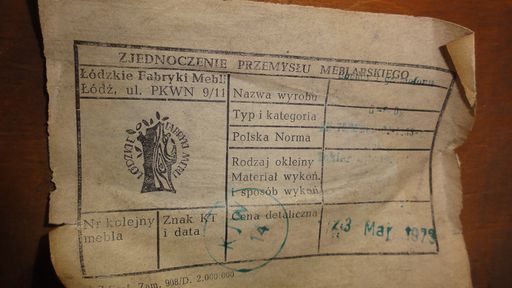 ZJEDNOCZENIE PRZEMYSŁU MEBLARSKIEGO
Łódzkie Fabryki Mebli
Łódź, ul. PKWN 9/11
ŁÓDZKIE FABRYKI MEBLI
Nazwa wyrobu
Typ i kategoria
Polska Norma
Rodzaj okleiny
Materiał wykoń.
i sposób wykoń.
Nr kolejny
mebla
Znak KT
i data
KJW
14
Cena detaliczna
23 Maj 1973
Zam. 908/D. 2.000.000